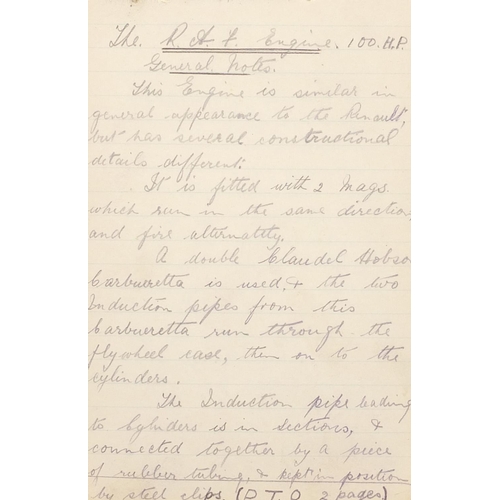 The R.A.F. Engine. 100.H.P.
General Notes.
This Engine is similar in
general appearance to the Renault,
but has several constructional
details different.
It is fitted with 2 Mags.
which run in the same direction,
and fire alternatly.
A double Claudel Hobson
Carburetta is used, & the two
Induction pipes from this
Carburetta run through the
flywheel case, then on to the
cylinders.
The Induction pipe leading
to Cylinders is in sections, &
connected together by a piece
of rubber tubing, & kept in position
by steel clips. (P T O 2 pages)